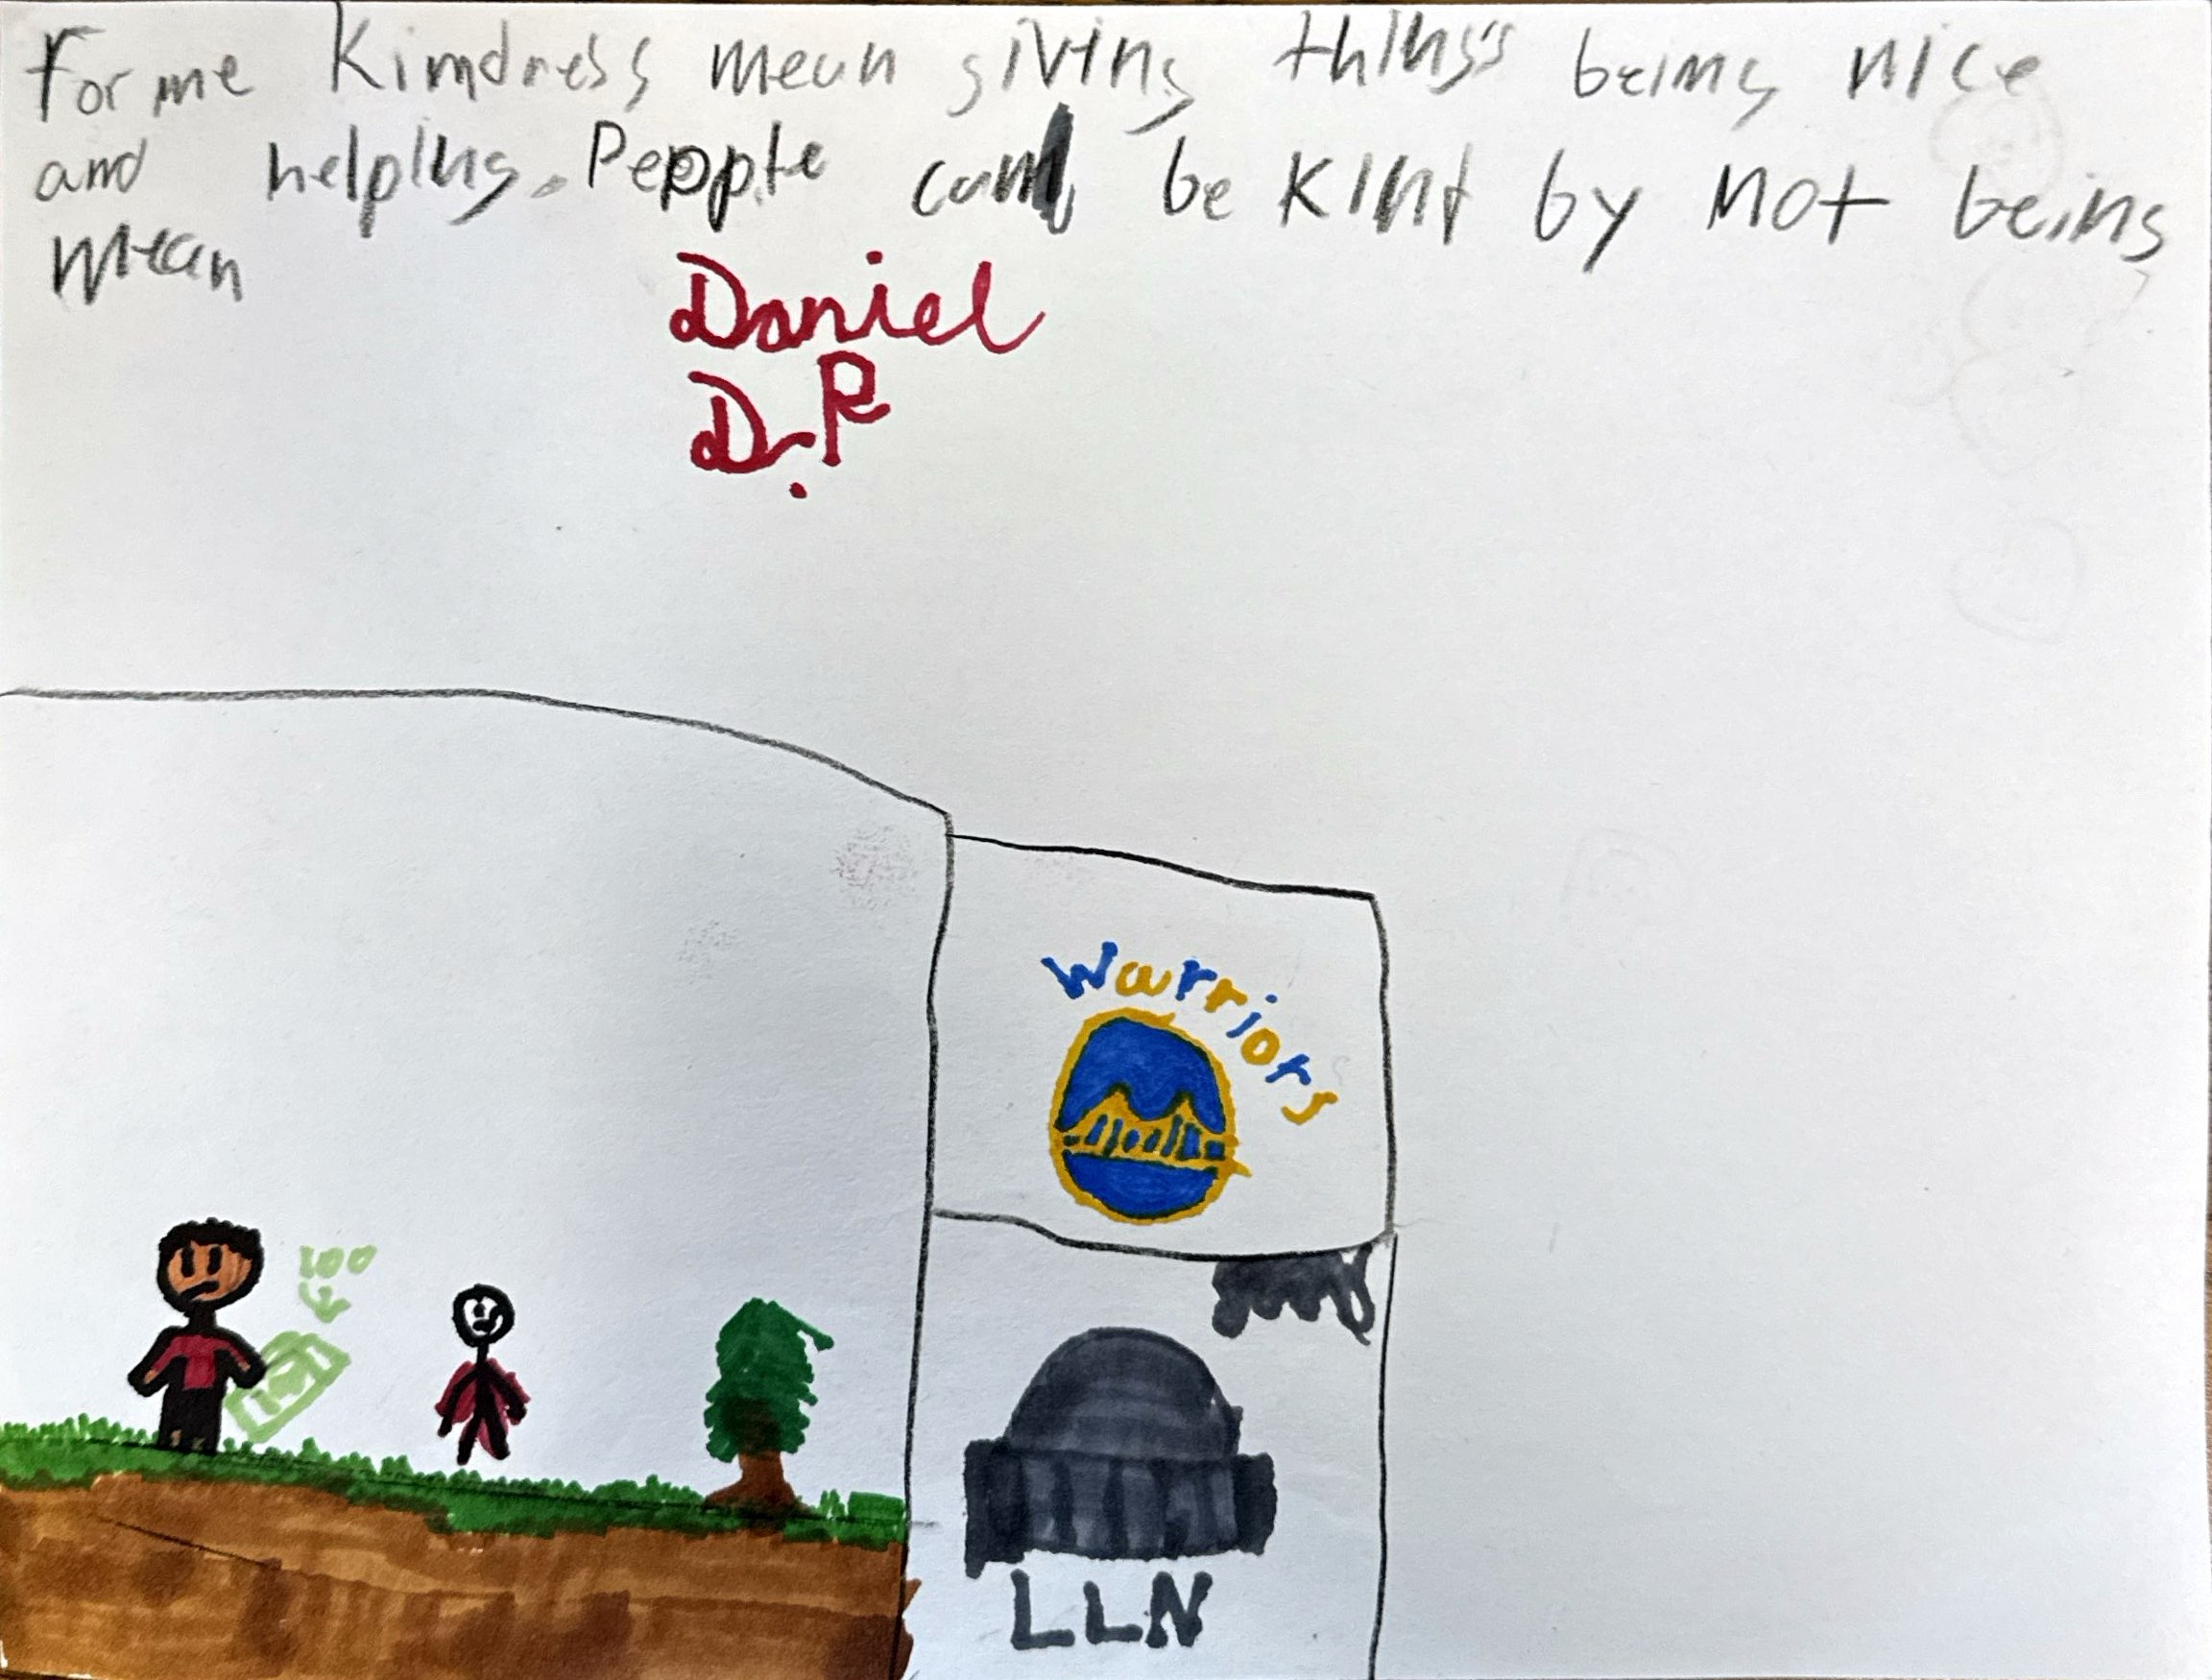 For me Kimdness mean giving things's being nice
and helping. People can be Kint by not being
mean
Daniel
D.P
Warriors
100
LLN